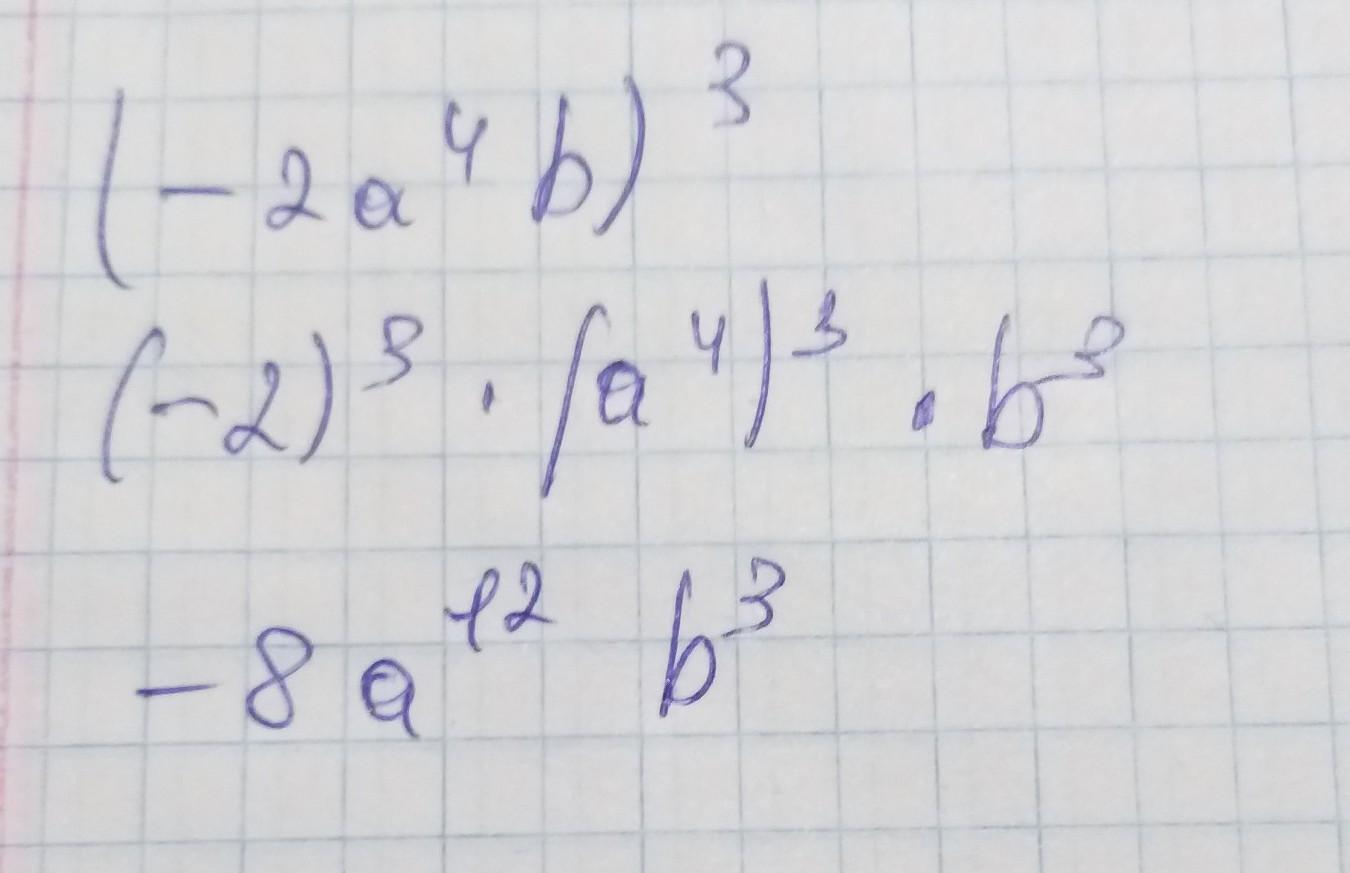 (-2a⁴b)³
(-2)³ · (a⁴)³ · b³
-8a¹² b³